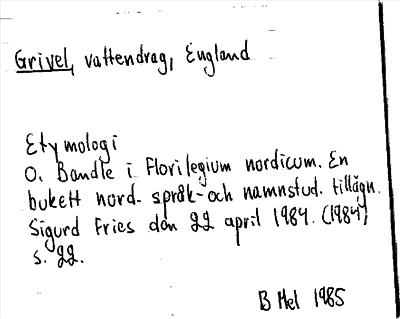 Grivel, vattendrag, England
Etymologi
O. Bandle i Florilegium nordicum. En
bukett nord. språk- och namnstud. tillägn.
Sigurd Fries den 22 april 1984. (1984)
s. 22.
B Mel 1985